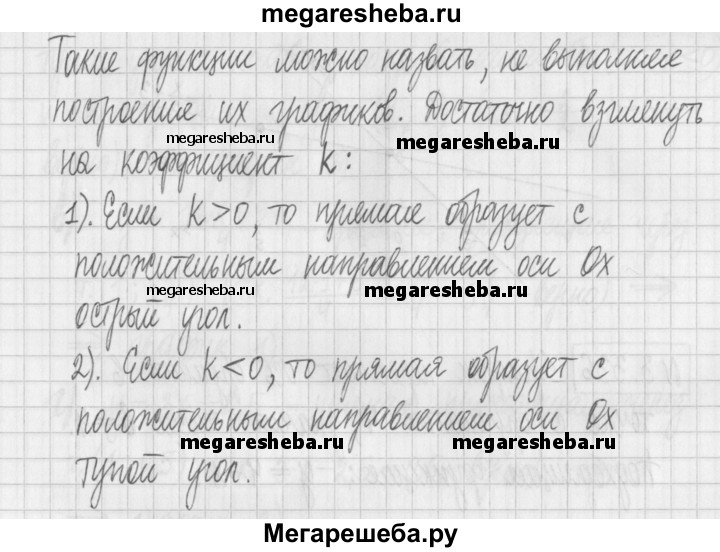 megaresheba.ru
Такие функции можно назвать, не выполняя
построения их графиков. Достаточно взглянуть
megaresheba.ru megaresheba.ru
на коэффициент k:
1). Если k>0, то прямая образует с
положительным направлением оси Ox
megaresheba.ru megaresheba.ru
острый угол.
2). Если k<0, то прямая образует с
положительным направлением оси Ox
megaresheba.ru megaresheba.ru
тупой угол.
Мегарешеба.ру